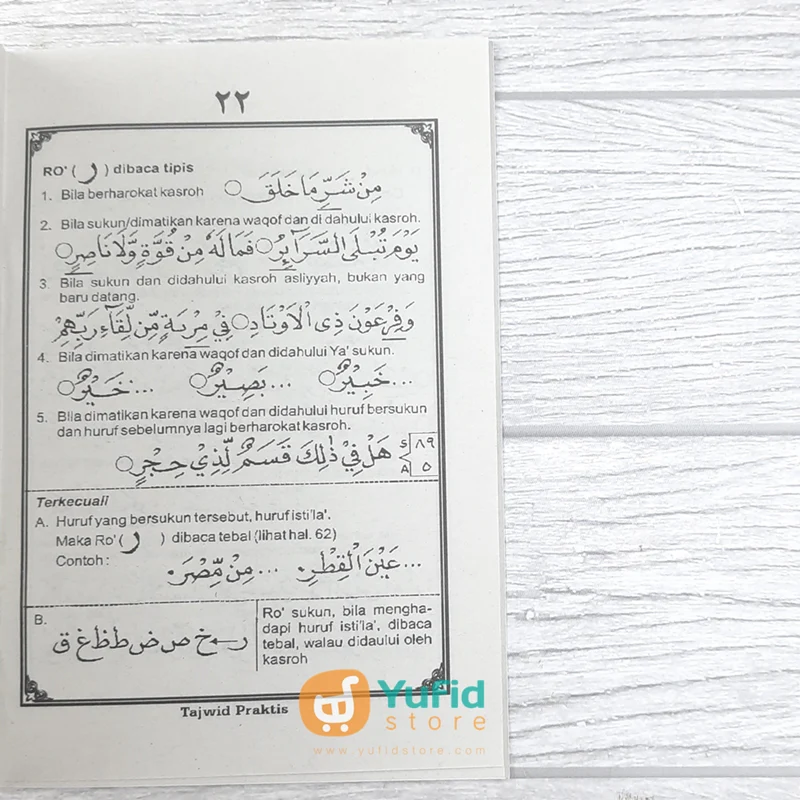 ٢٢
RO' ( ر ) dibaca tipis
1. Bila berharokat kasroh مِنْ شَرِّ مَا خَلَقَ
2. Bila sukun/dimatikan karena waqof dan di dahului kasroh.
يَوْمَ تُبْلَى السَّرَآئِرُ فَمَا لَهُ مِنْ قُوَّةٍ وَّلَا نَاصِرٍ
3. Bila sukun dan didahului kasroh asliyyah, bukan yang
baru datang.
وَفِرْعَوْنَ ذِى الْاَوْتَادِ فِيْ مِرْيَةٍ مِّنْ لِّقَآءِ رَبِّهِمْ
4. Bila dimatikan karena waqof dan didahului Ya' sukun.
...خَبِيْرٌ ...بَصِيْرٌ ...خَيْرٌ
5. Bila dimatikan karena waqof dan didahului huruf bersukun
dan huruf sebelumnya lagi berharokat kasroh.
هَلْ فِيْ ذٰلِكَ قَسَمٌ لِّذِيْ حِجْرٍ S ٨٩
A ٥
Terkecuali
A. Huruf yang bersukun tersebut, huruf isti'la'.
Maka Ro' ( ر ) dibaca tebal (lihat hal. 62)
Contoh : ...عَيْنَ الْقِطْرِ. ...مِنْ مِّصْرَ.
B.
ر ← خ ص ض ط ظ غ ق
Ro' sukun, bila mengha-
dapi huruf isti'la', dibaca
tebal, walau didaului oleh
kasroh
Tajwid Praktis
YuFid
store
www.yufidstore.com